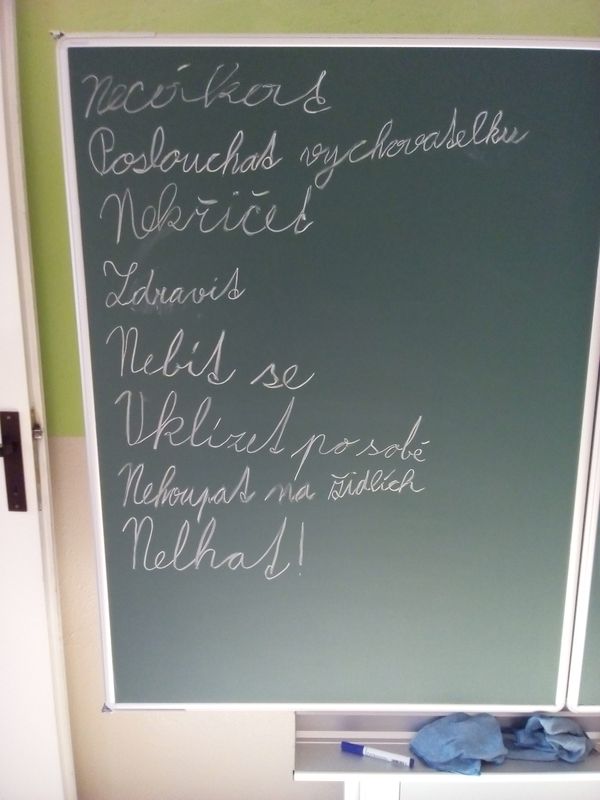 Necórkovat
Poslouchat vychovatelku
Nekřičet
Zdravit
Nebít se
Vklízet po sobě
Nehoupat na židlích
Nelhat!